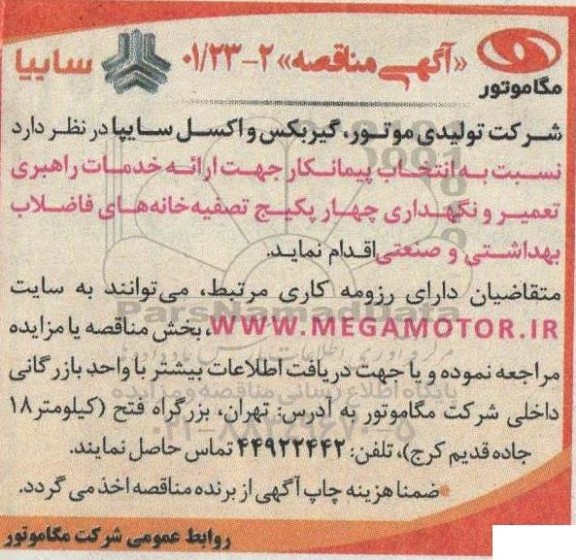 مگاموتور
«آگهی مناقصه» ۲-۰۱/۲۳
سایپا
شرکت تولیدی موتور، گیربکس و اکسل سایپا در نظر دارد
نسبت به انتخاب پیمانکار جهت ارائه خدمات راهبری
تعمیر و نگهداری چهار پکیج تصفیه‌خانه‌های فاضلاب
بهداشتی و صنعتی اقدام نماید.
متقاضیان دارای رزومه کاری مرتبط، می‌توانند به سایت
WWW.MEGAMOTOR.IR، بخش مناقصه یا مزایده
مراجعه نموده و یا جهت دریافت اطلاعات بیشتر با واحد بازرگانی
داخلی شرکت مگاموتور به آدرس: تهران، بزرگراه فتح (کیلومتر ۱۸
جاده قدیم کرج)، تلفن: ۴۴۹۲۲۴۴۲ تماس حاصل نمایند.
*ضمنا هزینه چاپ آگهی از برنده مناقصه اخذ می گردد.
روابط عمومی شرکت مگاموتور
ParsNamadData
پایگاه اطلاع رسانی مناقصه و مزایده